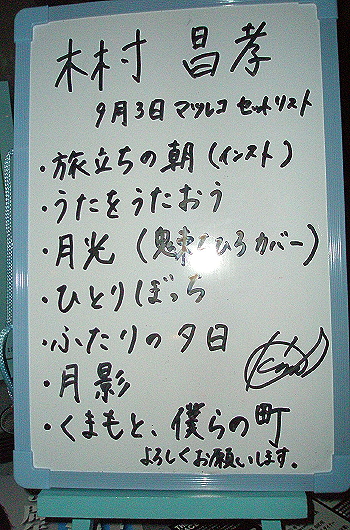 木村 昌孝
9月3日 マツレコ セットリスト
・旅立ちの朝(インスト)
・うたをうたおう
・月光(鬼束ちひろカバー)
・ひとりぼっち
・ふたりの夕日
・月影
・くまもと、僕らの町
よろしくお願いします。